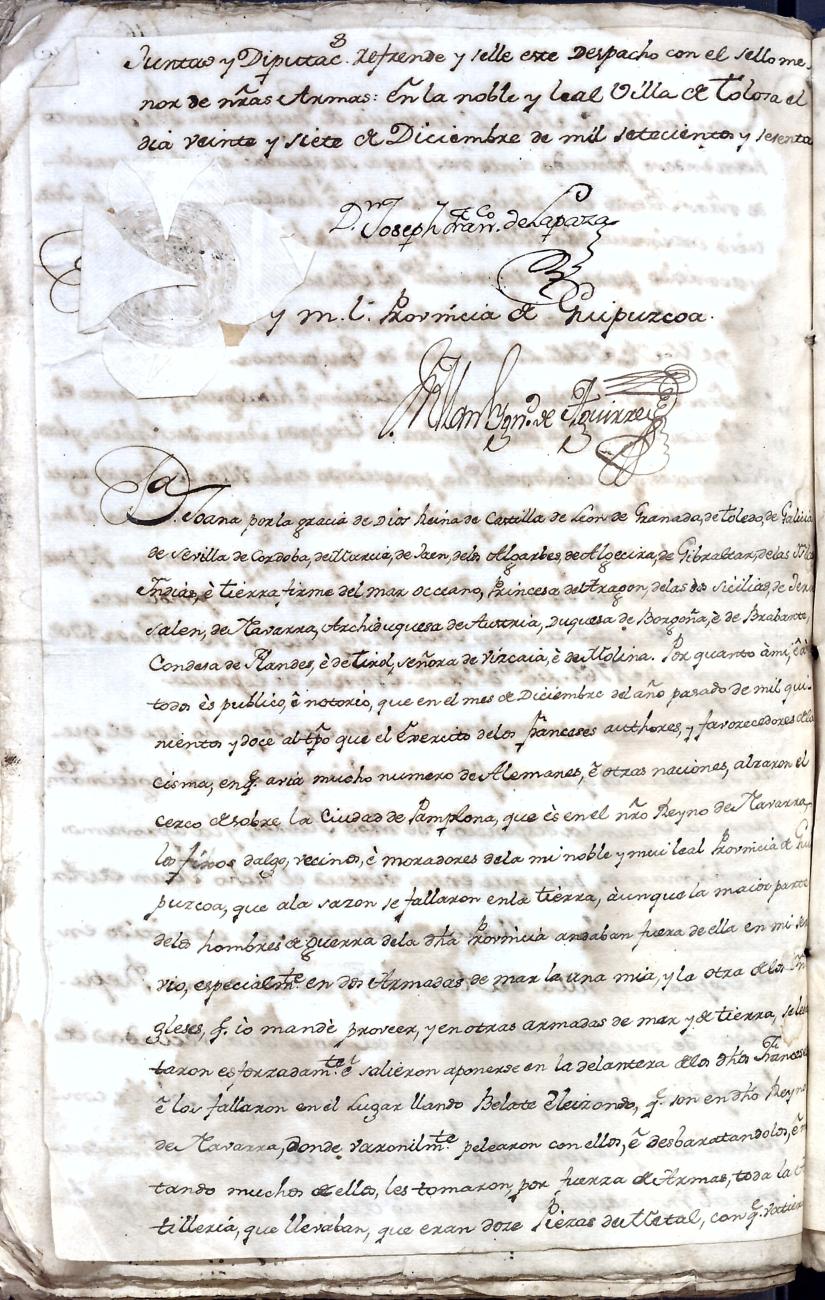 Juntas y Diputac.ˢ refrende y selle este Despacho con el sello me-
nor de nr̃as Armas: En la noble y leal Villa de Tolosa el
dia veinte y siete de Diciembre de mil setecientos y sesenta
D.ⁿ Joseph Fran.ᶜᵒ de Lapaza
y m. l. Provincia de Guipuzcoa.
de Aguirre
D.ᵃ Joana por la gracia de Dios Reina de Castilla de Leon de Granada, de Toledo, de Galicia
de Sevilla de Cordoba, de Murcia, de Jaen, delos Algarbes, de Algecira, de Gibraltar, de las Yslas
Indias, è tierra firme del mar occeano, Princesa de Aragon, delas dos Sicilias, de Jeru
salen, de Navarra, Archiduquesa de Austria, Duquesa de Borgoña, è de Brabante,
Condesa de Flandes, è de tirol, señora de Vizcaia, è de Molina. Por quanto àmi, è à
todos ès publico, è notorio, que en el mes de Diciembre del año pasado de mil qui-
nientos y doce al tp̃o que el Exercito delos franceses authores, y favorecedores dela
cisma, en q̃. avia mucho numero de Alemanes, è otras naciones, alzaron el
cerco de sobre la Ciudad de Pamplona, que ès en el nr̃o Reyno de Navarra,
los fixos dalgo, vecinos, è moradores dela mi noble y mui leal Provincia de Gui
puzcoa, que ala sazon se fallaron enla tierra, àunque la maior parte
delos hombres de guerra dela dh̃a Provincia andaban fuera de ella en mi ser
vio, especialm.ᵗᵉ en dos Armadas de mar la una mia, y la otra de los In
gleses, q̃. io mandè proveer, y en otras armadas de mar y de tierra, se lebã
taron esforzadam.ᵗᵉ è salieron aponerse en la delantera de los dh̃os Franceses
è los fallaron en el Lugar llamdo Belate è leizondo, q̃. son en dh̃o Reyno
de Navarra, donde varonilm.ᵗᵉ pelearon con ellos, è desbaratandolos, è m
tando muchos de ellos, les tomaron por fuerza de Armas, toda la Ar
tilleria, que llevaban, que eran doze Piezas de Metal, con q̃. vatier